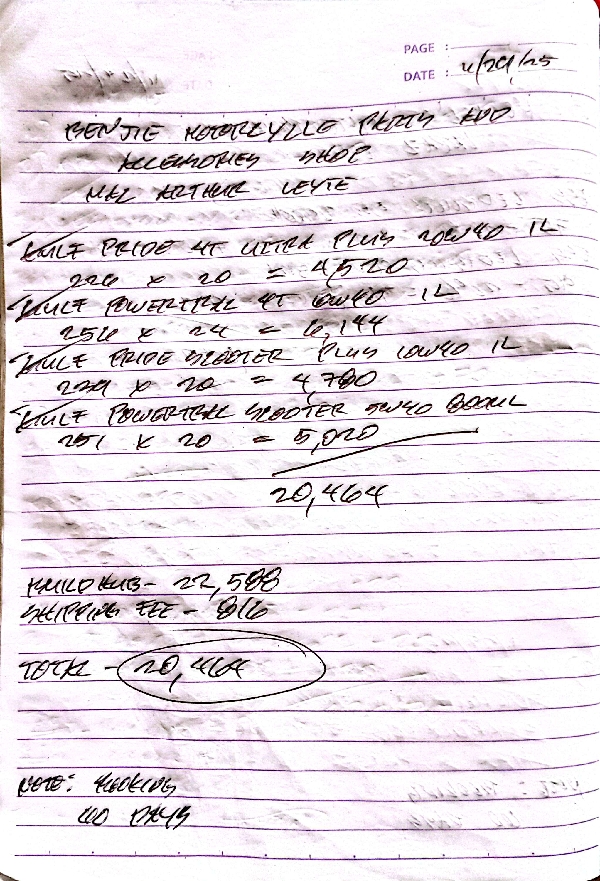 PAGE :
DATE : 4/29/25
BENJIE MOTORCYCLE PARTS AND
ACCESSORIES SHOP
MAC ARTHUR LEYTE
GULF PRIDE 4T ULTRA PLUS 20W40 1L
226 x 20 = 4,520
GULF POWERTRAC 4T 10W40 1L
256 x 24 = 6,144
GULF PRIDE SCOOTER PLUS 10W40 1L
239 x 20 = 4,780
GULF POWERTRAC SCOOTER 5W40 800ML
251 x 20 = 5,020
20,464
- 22,588
SHIPPING FEE - 816
TOTAL - 20,464
NOTE: BOOKING
40 DAYS